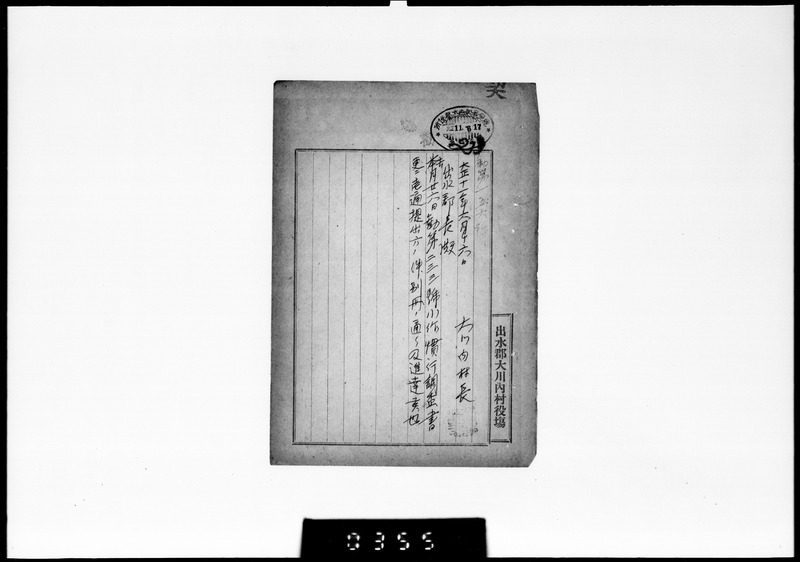 大正十一年六月十六日
大川内村長
出水郡長殿
本月廿六日勧第二三三號小作慣行調査書
更ニ壱通提出方ノ件別冊ノ通リ及進達候也
出水郡大川内村役場
11.6.17
0355